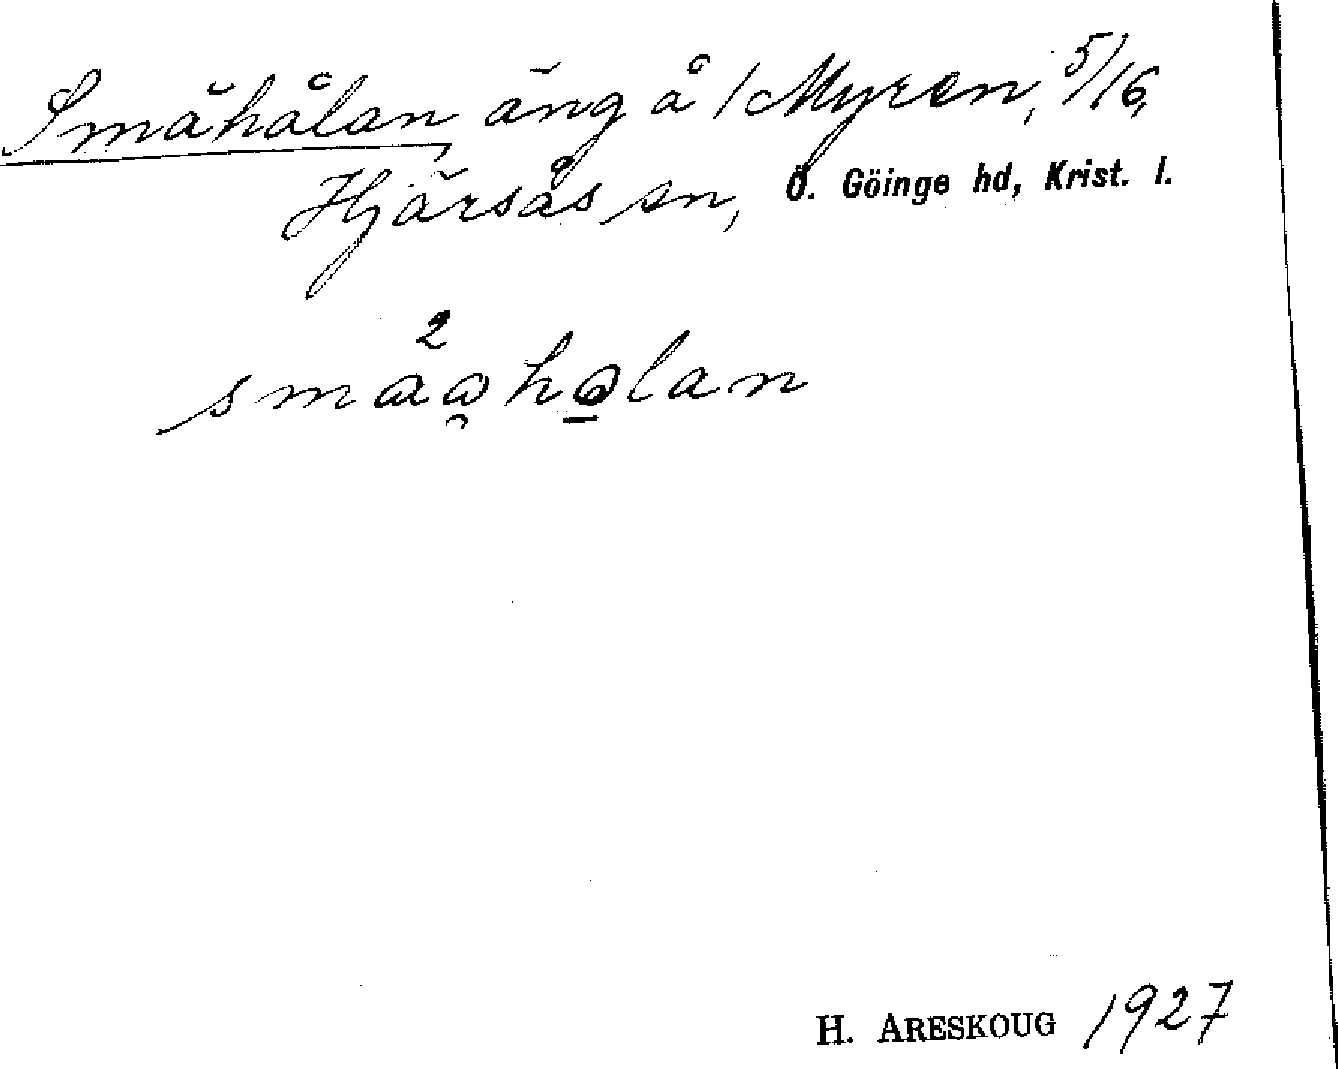 Småhålan, äng å 1 Myren, 5/16,
Hjärsås sn, Ö. Göinge hd, Krist. l.
2
smaaholan
H. ARESKOUG 1927